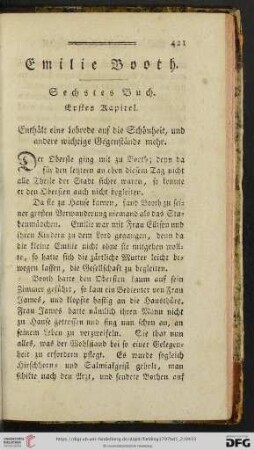 421
Emilie Booth.
Sechstes Buch.
Erstes Kapitel.
Enthält eine Lobrede auf die Schönheit, und
andere wichtige Gegenstände mehr.
Der Oberste ging mit zu Booth; denn da
für den letztern an eben diesem Tag nicht
alle Theile der Stadt sicher waren, so konnte
er den Obersten auch nicht begleiten.
Da sie zu Hause kamen, fand Booth zu sei-
ner großen Verwunderung niemand als das Stu-
benmädchen. Emilie war mit Frau Ellisen und
ihren Kindern zu dem Lord gegangen, denn da
die kleine Emilie nicht ohne sie mitgehen woll-
te, so hatte sich die zärtliche Mutter leicht be-
wegen lassen, die Gesellschaft zu begleiten.
Booth hatte den Obersten kaum auf sein
Zimmer geführt, so kam ein Bedienter von Frau
James, und klopfte hastig an die Hausthüre.
Frau James hatte nämlich ihren Mann nicht
zu Hause getroffen und fing nun schon an, an
seinem Leben zu verzweifeln. Sie that nun
alles, was der Wohlstand bey so einer Gelegen-
heit zu erfordern pflegt. Es wurde sogleich
Hirschhorn- und Salmiakgeist geholt, man
schickte nach den Arzt, und sendete Bothen auf